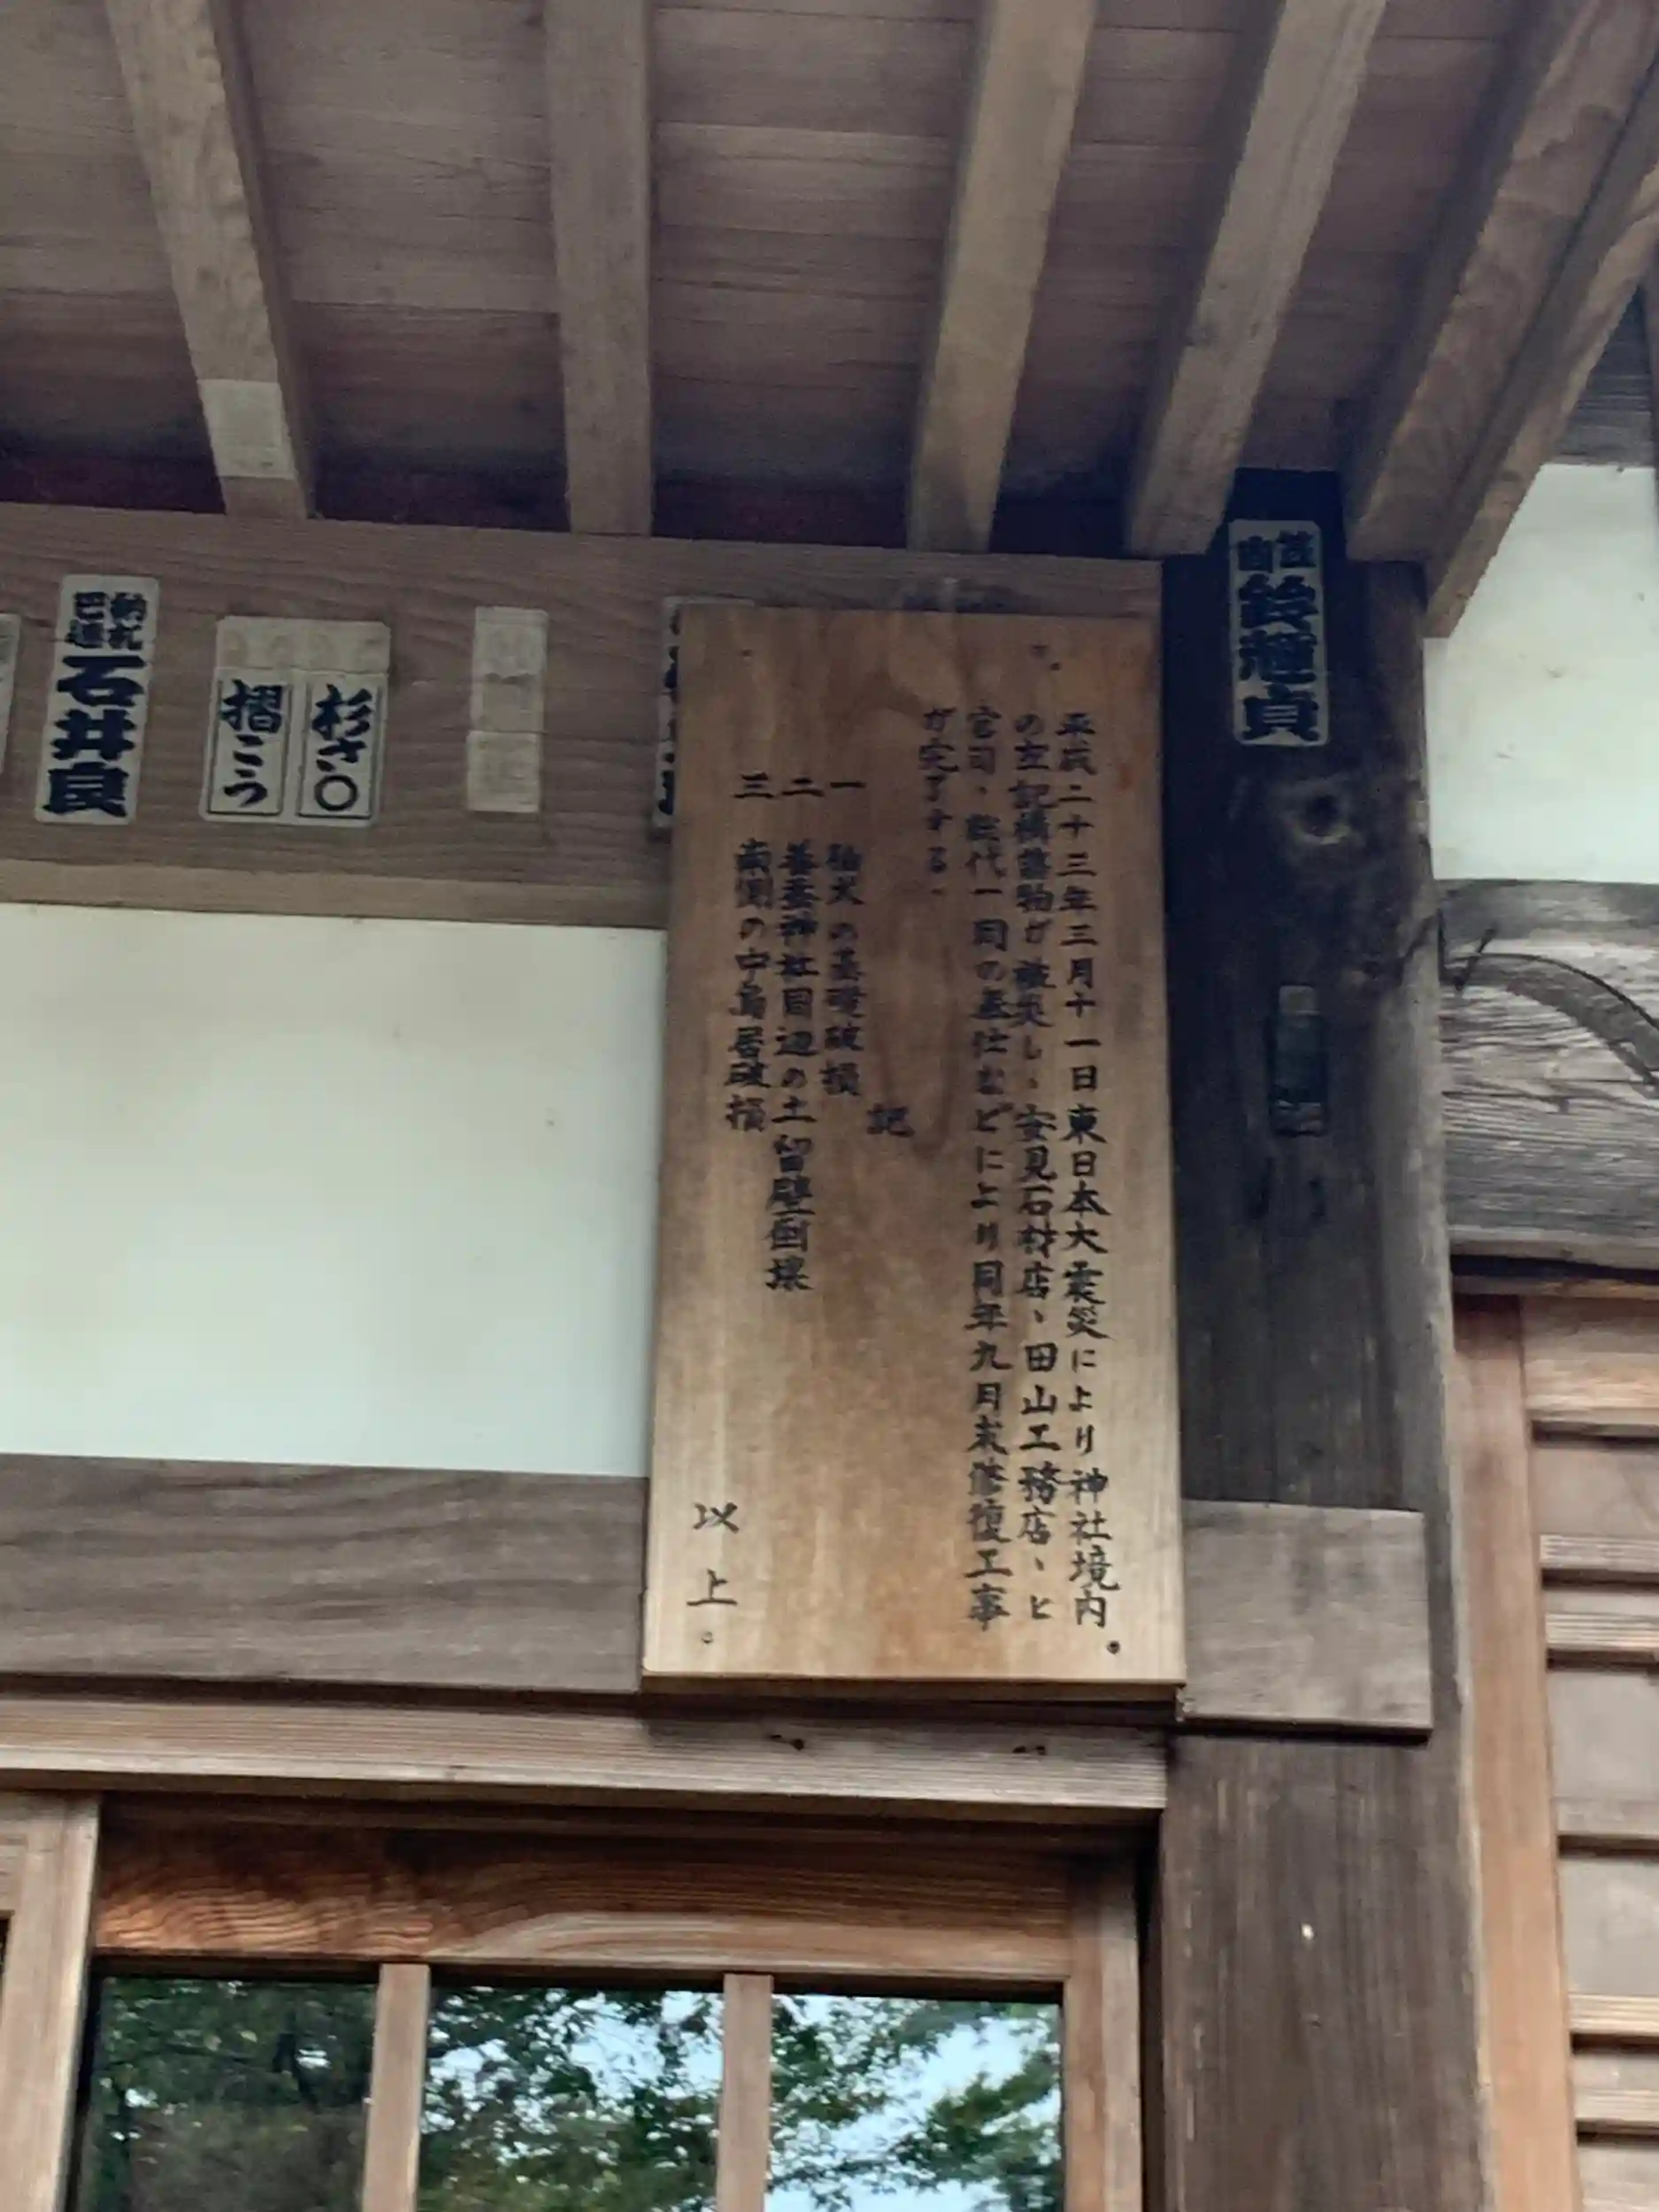 平成二十三年三月十一日東日本大震災により神社境内
の左記構築物が被災し、安見石材店、田山工務店、ヒ
宮司、総代一同の奉仕などにより同年九月末修復工事
が完了する。
記
一 狛犬の基礎破損
二 養蚕神社周辺の土留壁倒壊
三 南側の中鳥居破損
以上。
鈴木貞
杉さ〇
摺こう
納札
巴連
石井良